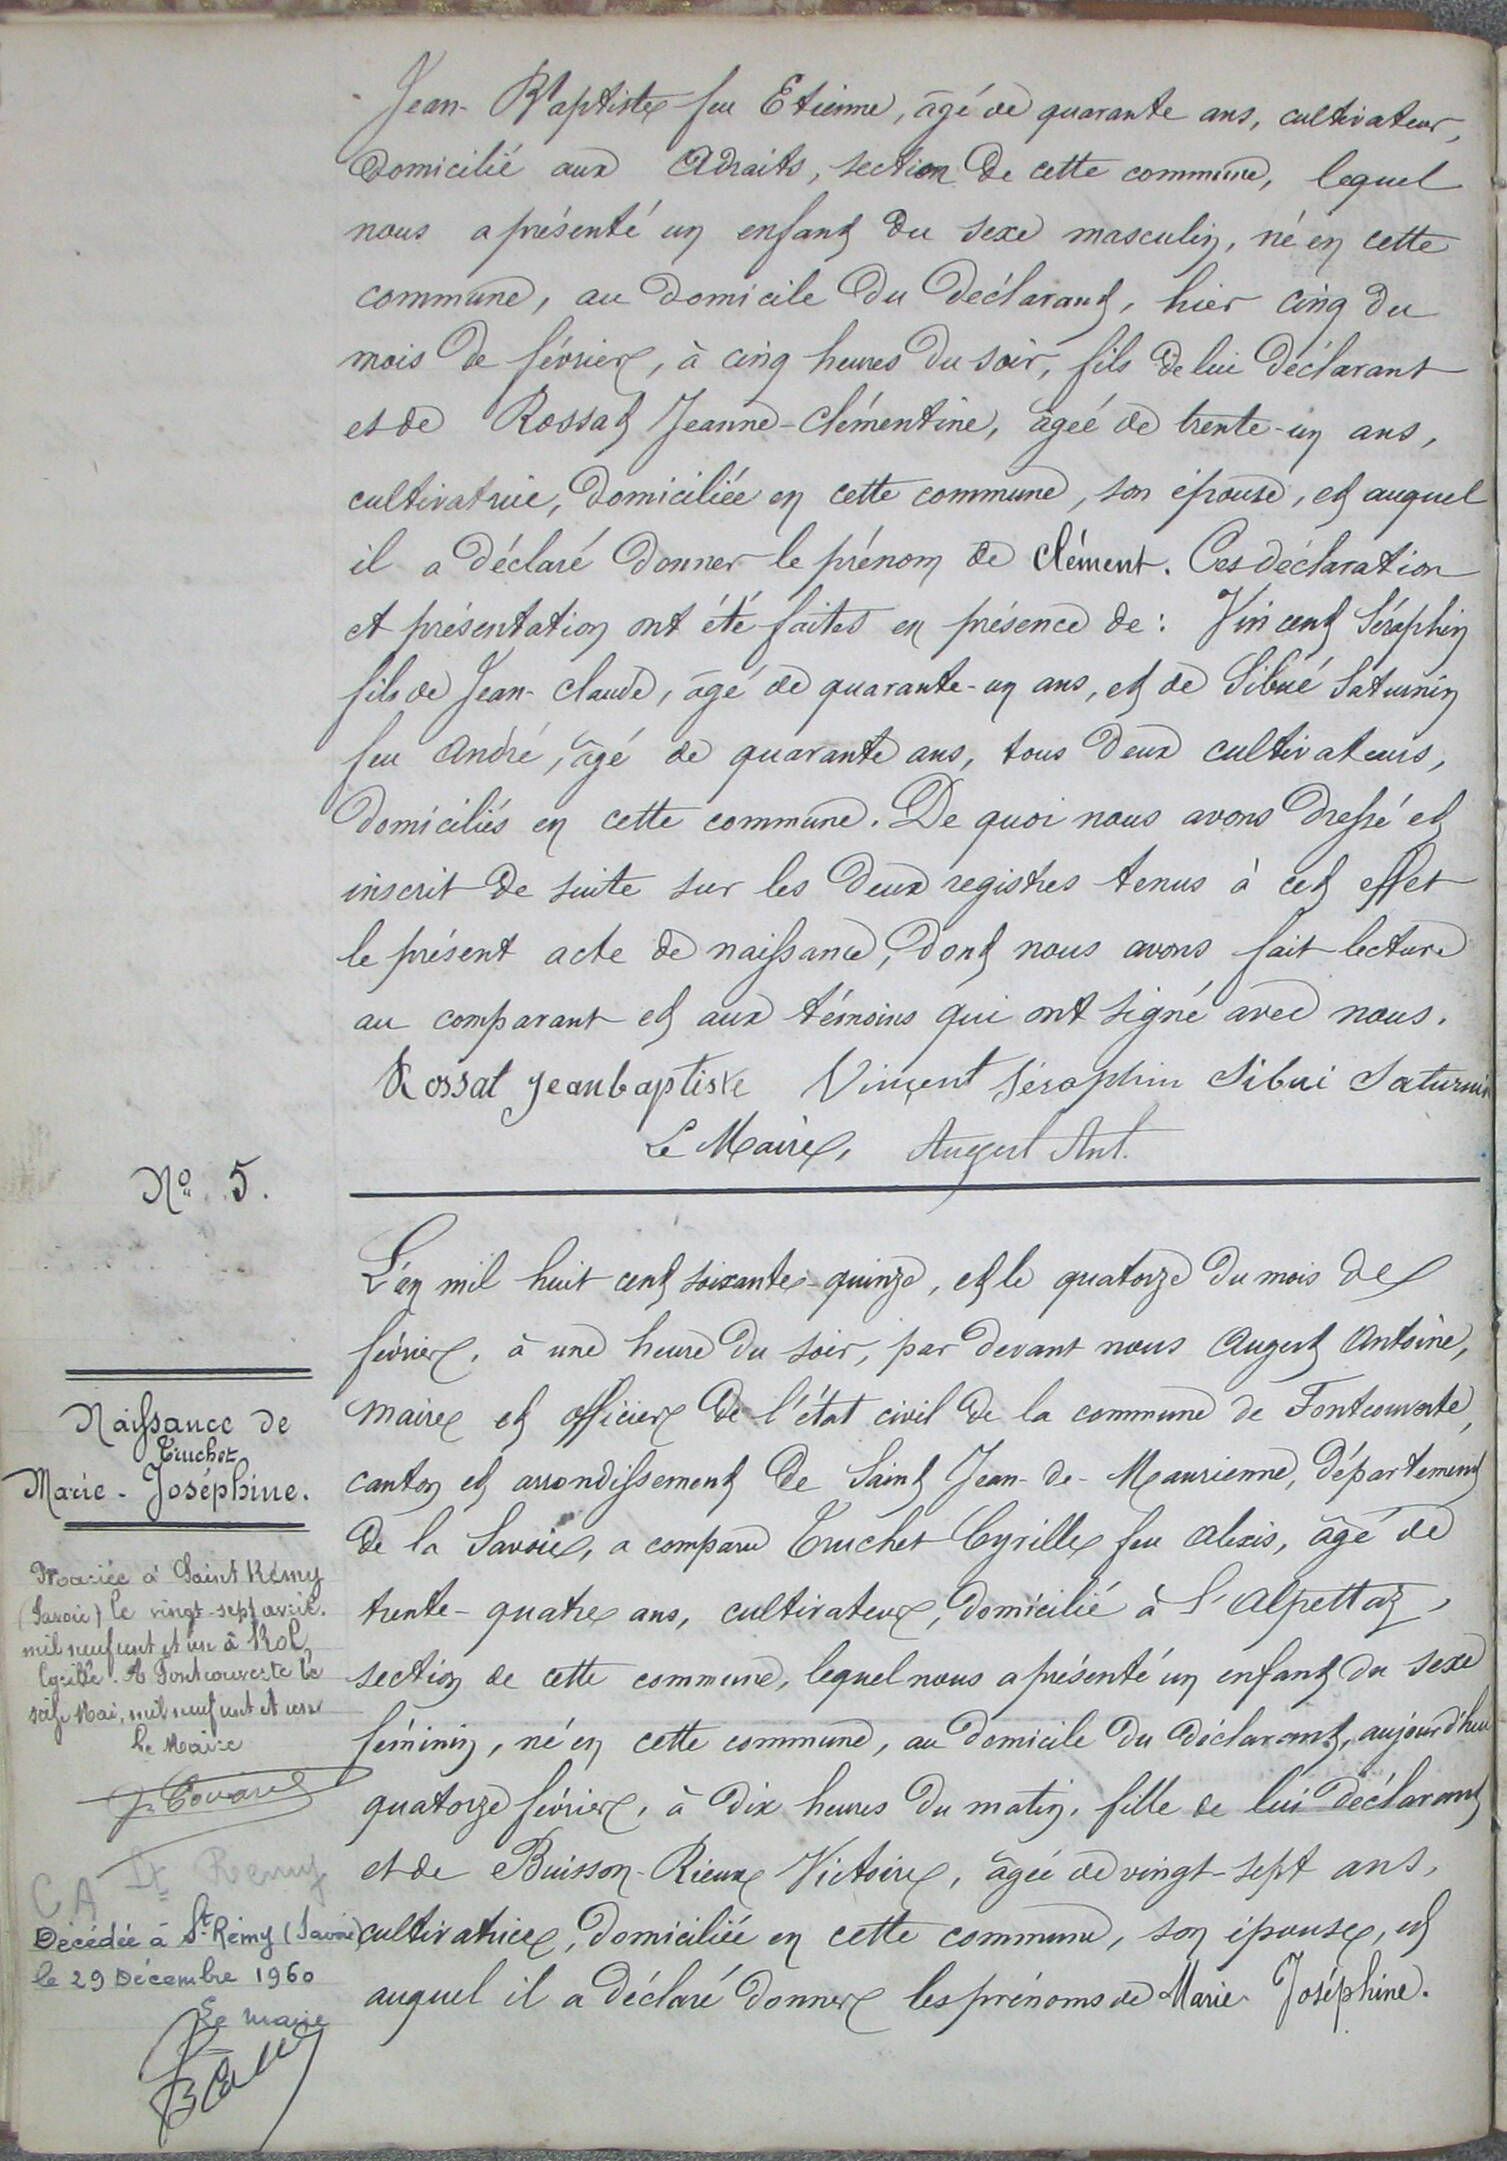 Jean-Baptiste feu Etienne, âgé de quarante ans, cultivateur,
domicilié aux Adraits, section de cette commune, lequel
nous a présenté un enfant du sexe masculin, né en cette
commune, au domicile du déclarant, hier cinq du
mois de février, à cinq heures du soir, fils de lui déclarant
et de Rossat Jeanne-Clémentine, âgée de trente-un ans,
cultivatrice, domiciliée en cette commune, son épouse, et auquel
il a déclaré donner le prénom de Clément. Ces déclaration
et présentation ont été faites en présence de : Vincent Séraphin
fils de Jean-Claude, âgé de quarante-un ans, et de Sibué Saturnin
feu André, âgé de quarante ans, tous deux cultivateurs,
domiciliés en cette commune. De quoi nous avons dressé et
inscrit de suite sur les deux registres tenus à cet effet
le présent acte de naissance, dont nous avons fait lecture
au comparant et aux témoins qui ont signé avec nous.
Rossat jeanbaptiste Vinçent Séraphin Sibui Saturnin
Le Maire, Augert Ant.
No. 5.
Naissance de
Truchet
Marie-Joséphine.
Mariée à Saint Rémy
(Savoie) le vingt-sept avril
mil neuf cent et un à Rol
A Fontcouverte le
Mai, mil neuf cent et un
Le Maire
CA St Remy
Décédée à St-Rémy (Savoie)
le 29 Décembre 1960
Le maire
L'an mil huit cent soixante-quinze, et le quatorze du mois de
février, à une heure du soir, par devant nous Augert Antoine,
maire et officier de l'état civil de la commune de Fontcouverte,
canton et arrondissement de Saint Jean-de-Maurienne, département
de la Savoie, a comparu Truchet Cyrille feu Alexis, âgé de
trente-quatre ans, cultivateur, domicilié à l'Alpettaz,
section de cette commune, lequel nous a présenté un enfant du sexe
féminin, né en cette commune, au domicile du déclarant, aujourd'hui
quatorze février, à dix heures du matin, fille de lui déclarant
et de Buisson-Rieux Victoire, âgée de vingt-sept ans,
cultivatrice, domiciliée en cette commune, son épouse, et
auquel il a déclaré donner les prénoms de Marie-Joséphine.